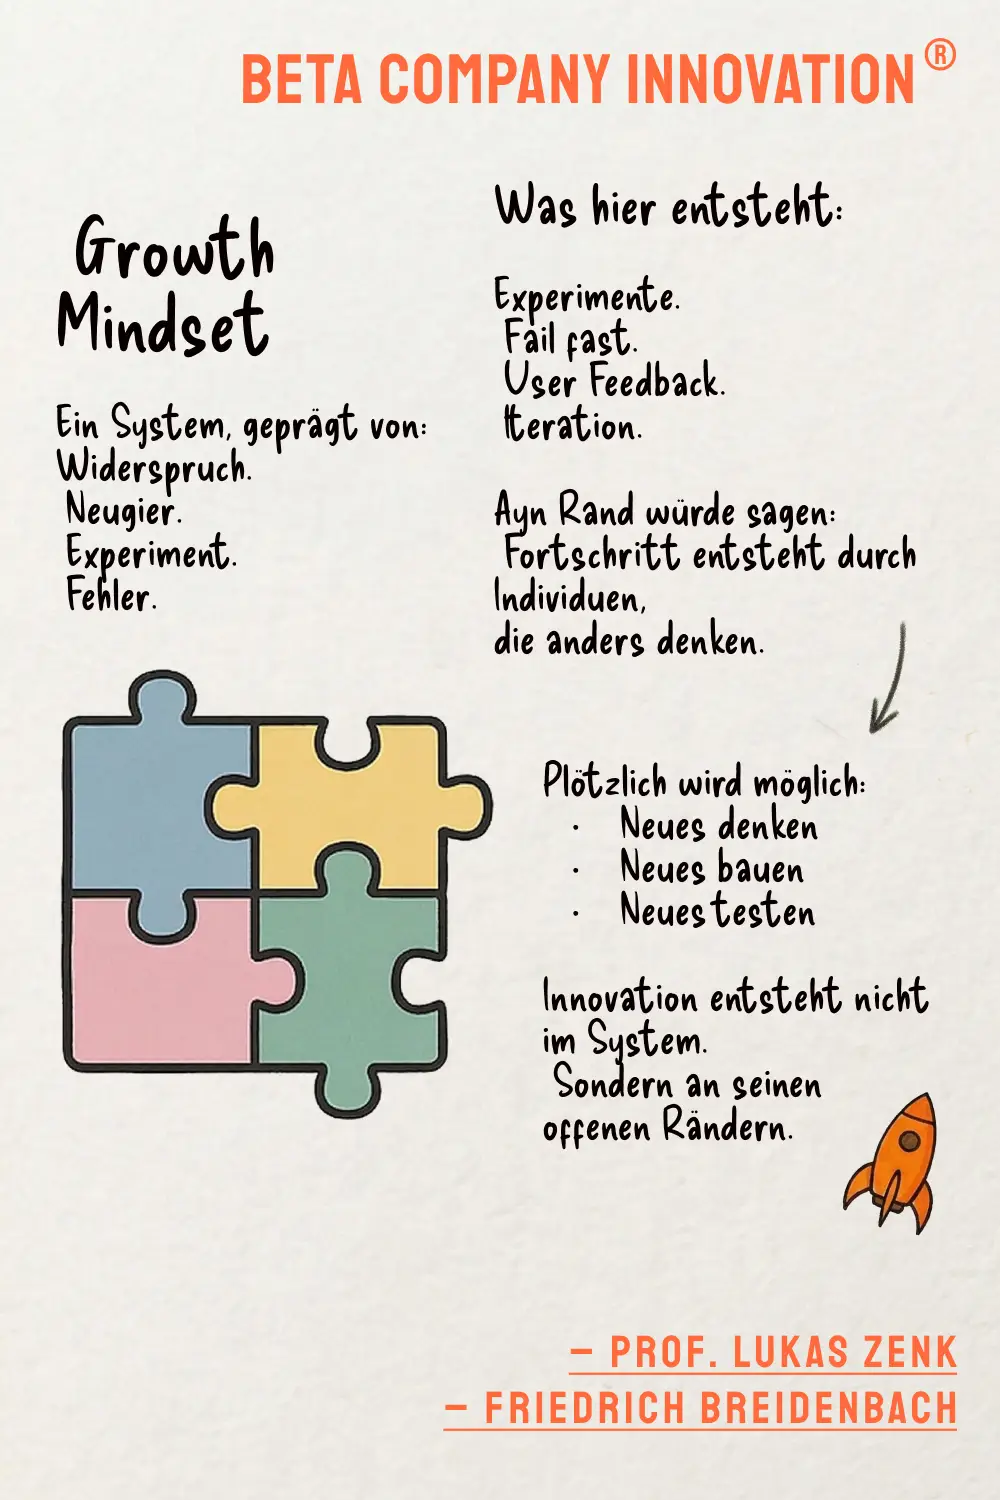 BETA COMPANY INNOVATION®
Growth
Mindset
Ein System, geprägt von:
Widerspruch.
Neugier.
Experiment.
Fehler.
Was hier entsteht:
Experimente.
Fail fast.
User Feedback.
Iteration.
Ayn Rand würde sagen:
Fortschritt entsteht durch
Individuen,
die anders denken.
Plötzlich wird möglich:
· Neues denken
· Neues bauen
· Neues testen
Innovation entsteht nicht
im System.
Sondern an seinen
offenen Rändern.
– PROF. LUKAS ZENK
– FRIEDRICH BREIDENBACH